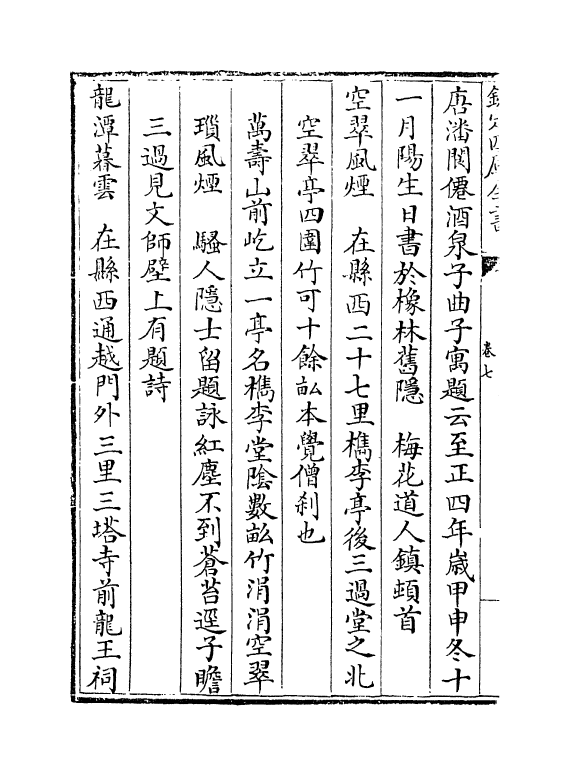 欽定四庫全書
卷七
唐潘閬僊酒泉子曲子寓題云至正四年歲甲申冬十
一月陽生日書於橡林舊隱　梅花道人鎮頓首
空翠風煙　在縣西二十七里檇李亭後三過堂之北
空翠亭四圍竹可十餘畝本覺僧刹也
萬壽山前屹立一亭名檇李堂陰數畝竹涓涓空翠
瑣風煙　騷人隱士留題詠紅塵不到蒼苔逕子瞻
三過見文師壁上有題詩
龍潭暮雲　在縣西通越門外三里三塔寺前龍王祠